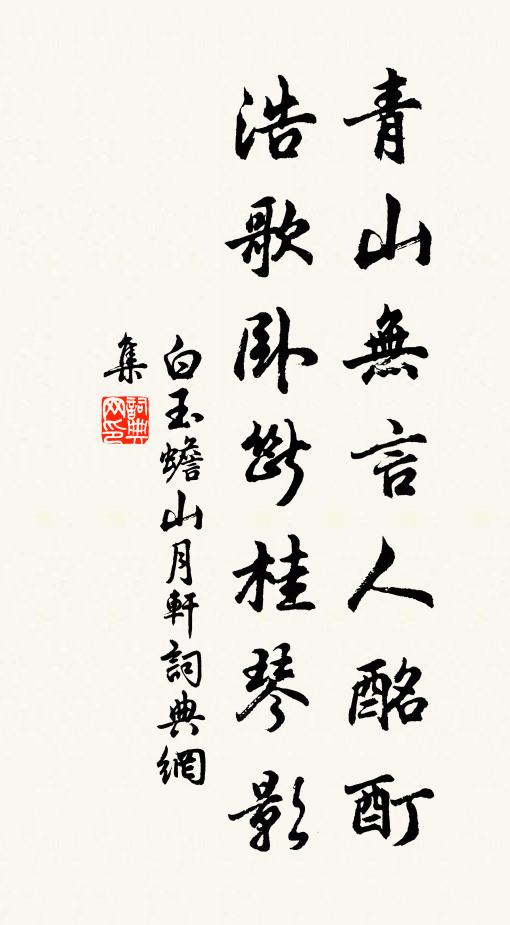 青山無言人酩酊
浩歌卧斷桂琴影
白玉蟾山月軒詞典網
集
詞典网印